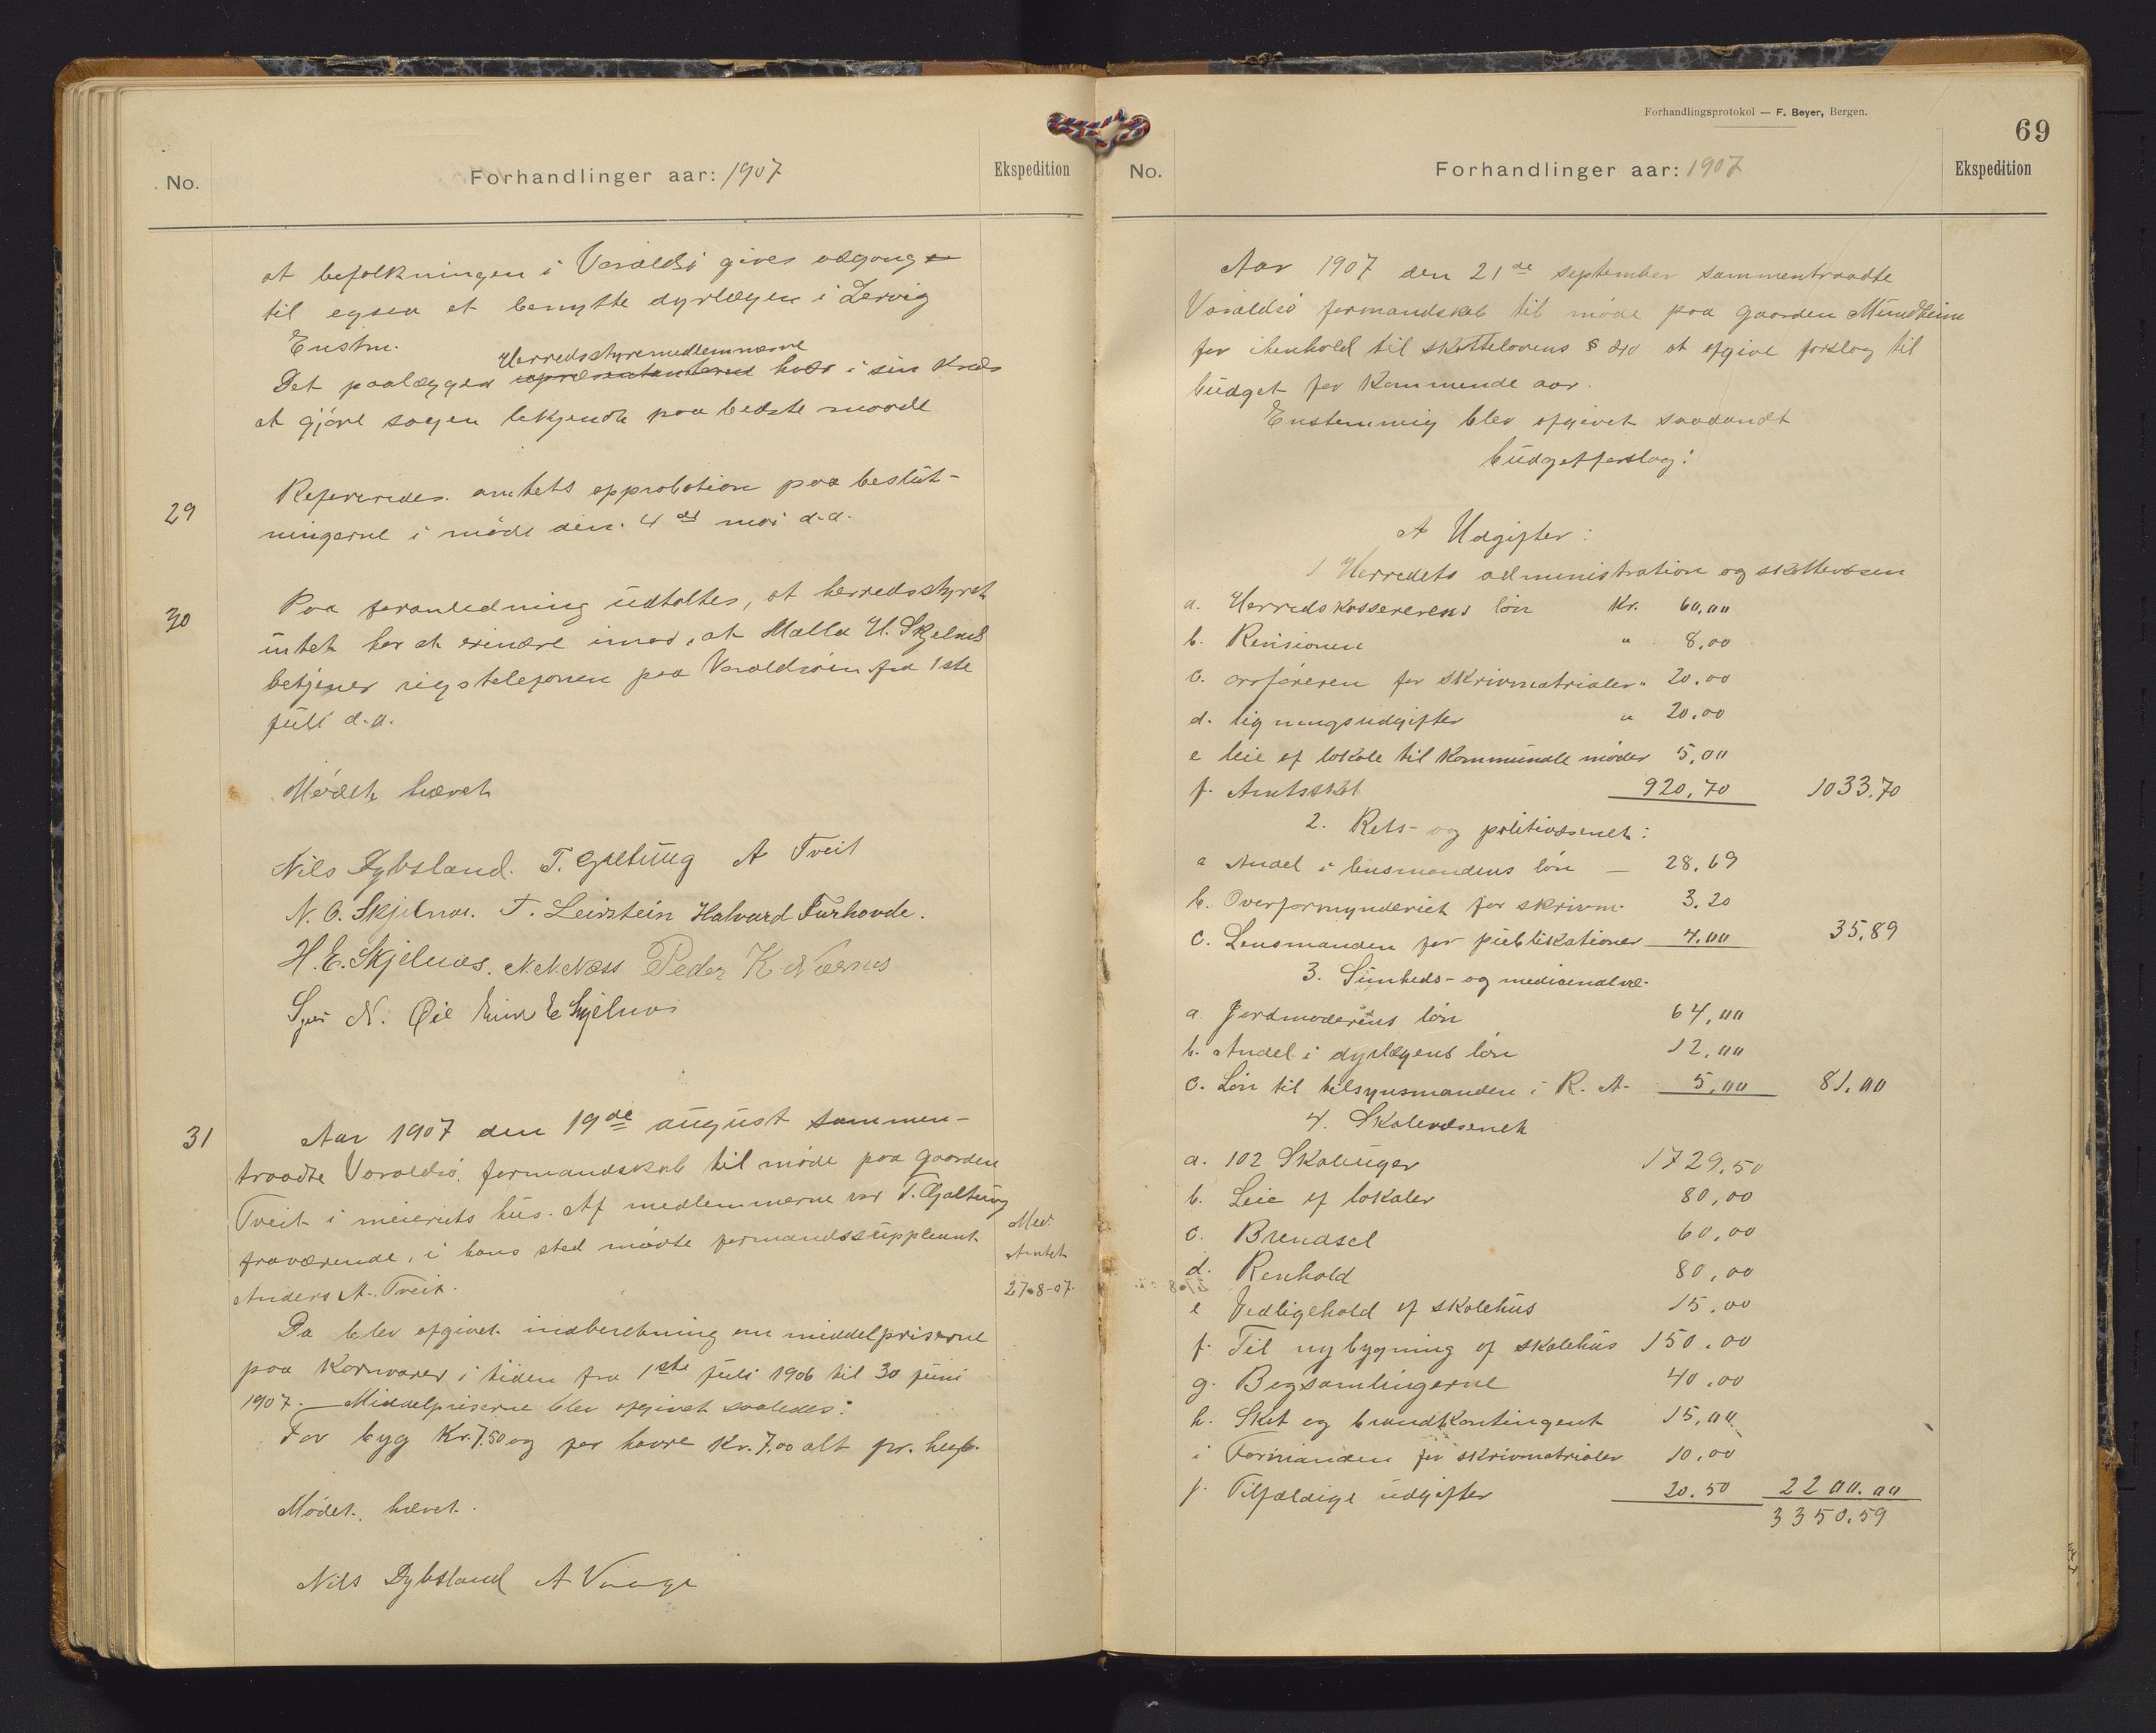 No.
Forhandlinger aar: 1907
Ekspedition
at befolkningen i Varaldsö gives adgang
til ogsaa at benytte dyrlægen i Lervig
Enstm.
Herredsstyremedlemmerne
Det paalægges repræsentanterne hver i sin Kreds
at gjöre sagen bekjendt paa bedste maade
29
Refereredes amtets approbation paa beslut-
ningerne i möde den 4de mai d.a.
30
Paa foranledning udtaltes, at herredsstyret
intet har at erindre imod, at Malla H. Skjelnes
betjener rigstelefonen paa Varaldsöen fra 1ste
juli d.a.
Mödet hævet
Nils Dybsland. T. Galtung A Tveit
N. O. Skjelnæs. T. Leirstein Halvard Furhovde.
H. E. Skjelnæs. N. N. Næss Peder K Nernes
N. Øie E Skjelnes
31
Aar 1907 den 19de august sammen-
traadte Varaldsö formandskab til möde paa gaarden
Tveit i meieriets hus. Af medlemmerne var T. Galtung
fraværende, i hans sted mödte formandssuppleant
Anders A. Tveit.
Med.
Amtet
27-8-07.
Da blev afgivet indberetning om middelpriserne
paa Kornvarer i tiden fra 1ste juli 1906 til 30 juni
1907. Middelpriserne blev afgivet saaledes:
For byg Kr. 7.50 og for havre Kr. 7,00 alt pr. hect.
Mödet hævet.
Nils Dybsland A Vaage
Forhandlingsprotokol — F. Beyer, Bergen.
69
No.
Forhandlinger aar: 1907
Ekspedition
Aar 1907 den 21de september sammentraadte
Varaldsö formandskab til möde paa gaarden Mundheim
for i henhold til skattelovens § 40 at afgive forslag til
budget for Kommende aar.
Enstemmig blev afgivet saadandt
budgetforslag:
A Udgifter:
1 Herredets administration og skattevæsen
a. Herredskassererens lön Kr. 60,00
b. Revisionen " 8,00
c. ordföreren for skrivmatrialer " 20.00
d. ligningsudgifter " 20.00
e leie af lokale til Kommunale möder 5,00
f. Amtsskat 920,70 1033,70
2. Rets- og politivæsenet:
a Andel i lensmandens lön — 28,69
b. Overformynderiet for skrivm. 3.20
c. Lensmanden for publikationer 4,00 35,89
3. Sunheds- og medicenalvæ-
a. Jordmoderens lön 64,00
b. Andel i dyrlægens lön 12,00
c. Lön til tilsynsmanden i R. A. 5,00 81,00
4. Skolevæsenet
a. 102 Skoleuger 1729,50
b. Leie af lokaler 80,00
c. Brendsel 60,00
d. Renhold 80,00
e Vedligehold af skolehus 15,00
f. Til nybygning af skolehus 150.00
g. Bogsamlingerne 40.00
h. Skat og brandkontingent 15,00
i Formanden for skrivmatrialer 10.00
j. Tilfældige udgifter 20.50 2200.00
3350,59